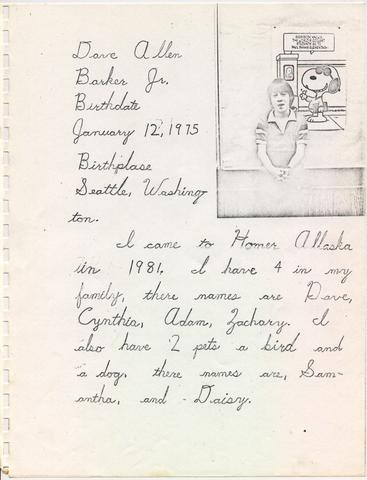 Dave Allen
Barker Jr.
Birthdate
January 12, 1975
Birthplase
Seattle, Washing-
ton.
I came to Homer Allaska
in 1981. I have 4 in my
family, there names are Dave,
Cynthia, Adam, Zachary. I
also have 2 pets a bird and
a dog. there names are, Sam-
antha, and - Daisy.